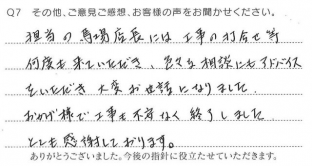 Q7 その他、ご意見ご感想、お客様の声をお聞かせください。
担当の馬場店長には工事の打合せ等
何度も来ていただき、色々な相談にもアドバイス
をいただき大変お世話になりました。
おかげ様で工事も不安なく終了しました。
とても感謝しております。
ありがとうございました。今後の指針に役立たせていただきます。